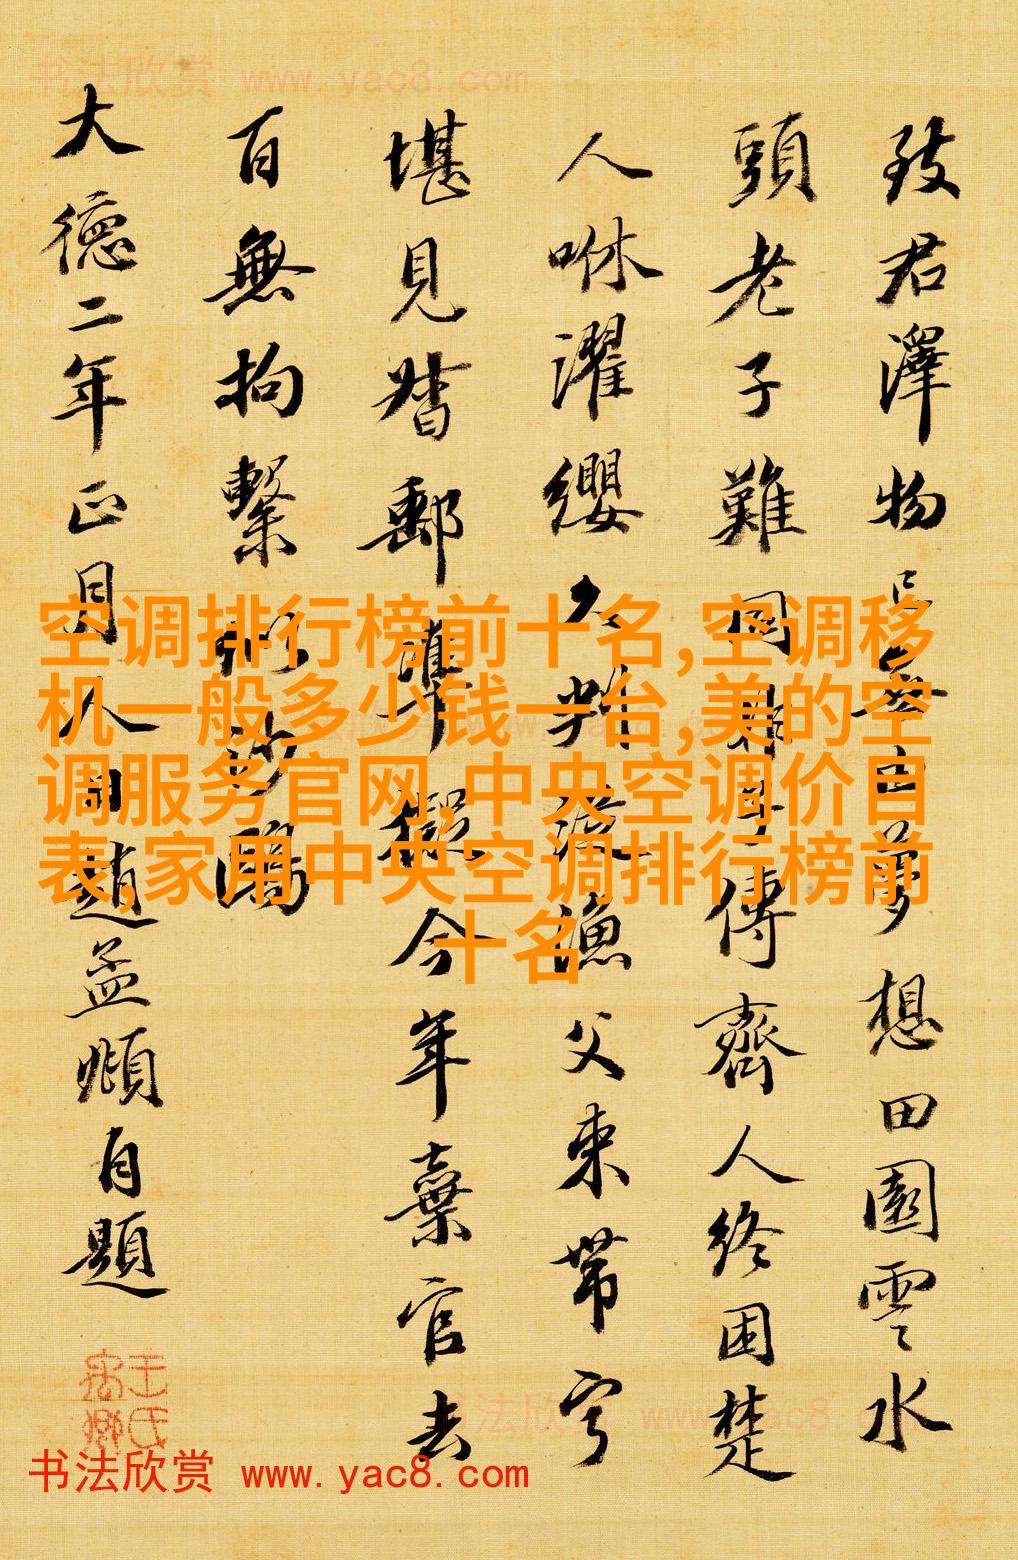 书法欣赏 www.yac8.com
致君澤物已無由夢想田園雲水
頭老子難同非子傳齊人終困楚
人咻濯纓久判從漁父束帶寧
堪見督郵準擬今年棄官去
百無拘繫似沙鷗
大德二年正月人日趙孟頫自題
空调排行榜前十名,空调移
机一般多少钱一台,美的空
调服务官网,中央空调价目
表,家用中央空调排行榜前
十名
书法欣赏 www.yac8.com